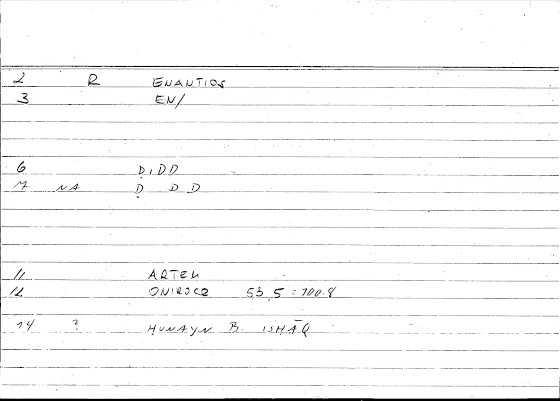 2 R ENANTIOS
3 EN/
6 ḌIDD
7 NA Ḍ D D
11 ARTEM
12 ONIROCR 53,5 = 100.8
14 ? HUNAYN B. ISHĀQ